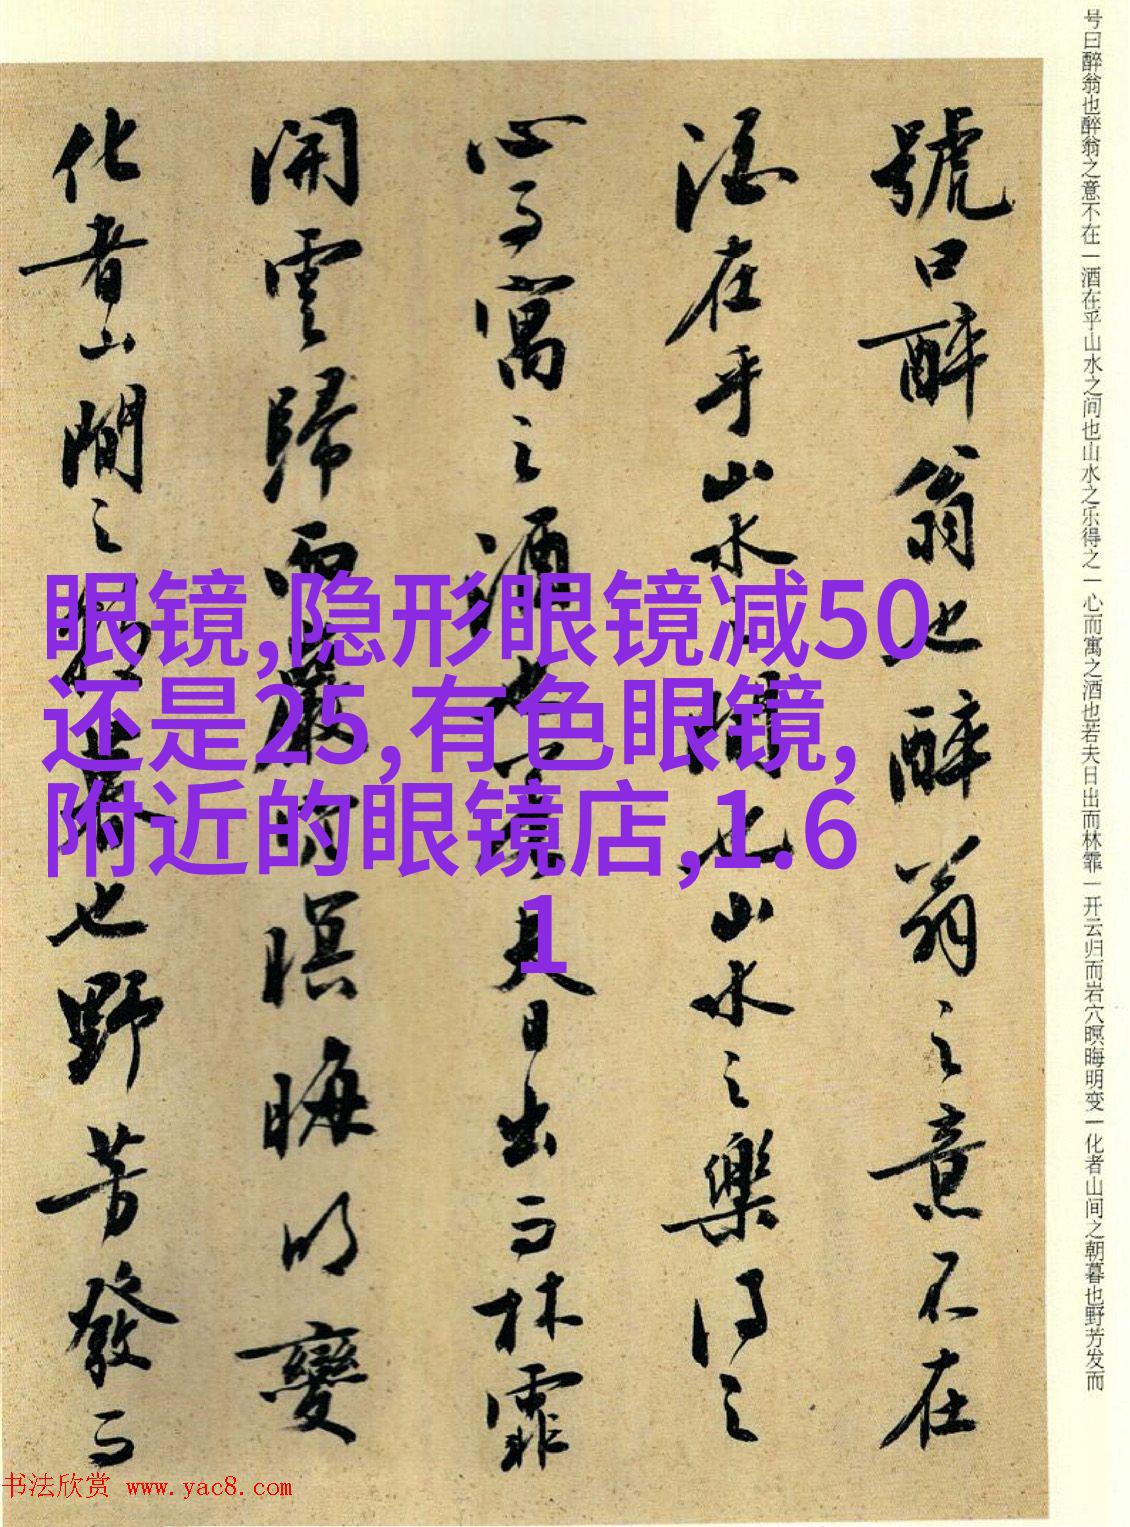 号曰醉翁也醉翁之意不在一酒在乎山水之间也山水之乐得之一心而寓之酒也若夫日出而林霏一开云归而岩穴暝晦明变一化者山间之朝暮也野芳发而
號曰醉翁也醉翁之意不在
酒在乎山水之間也山水之樂得之
心而寓之酒也若夫日出而林霏
開雲歸而巖穴暝晦明變
化者山間之朝暮也野芳發而
眼镜,隐形眼镜减50
还是25,有色眼镜,
附近的眼镜店,1.6
1
书法欣赏 www.yac8.com